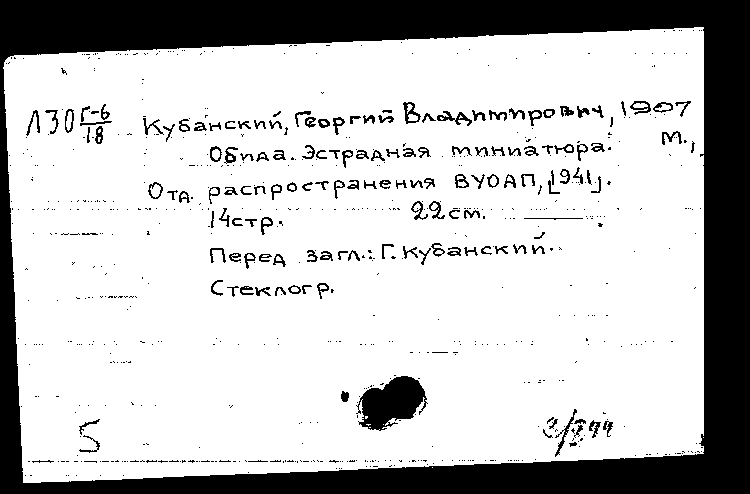 Л30 Г-6/18 Кубанский, Георгий Владимирович, 1907
Обида. Эстрадная миниатюра. М.,
Отд. распространения ВУОАП, [1941].
14стр. 22см.
Перед загл.: Г. Кубанский.
Стеклогр.
5